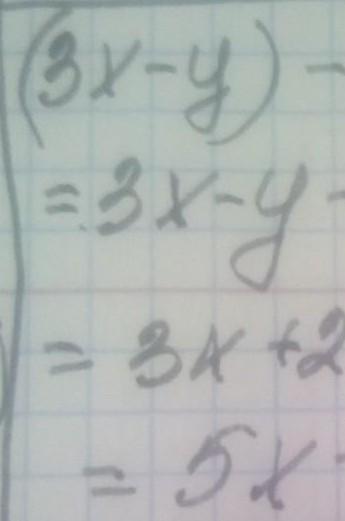 (3x-y)-
=3x-y-
=3x+2
=5x-